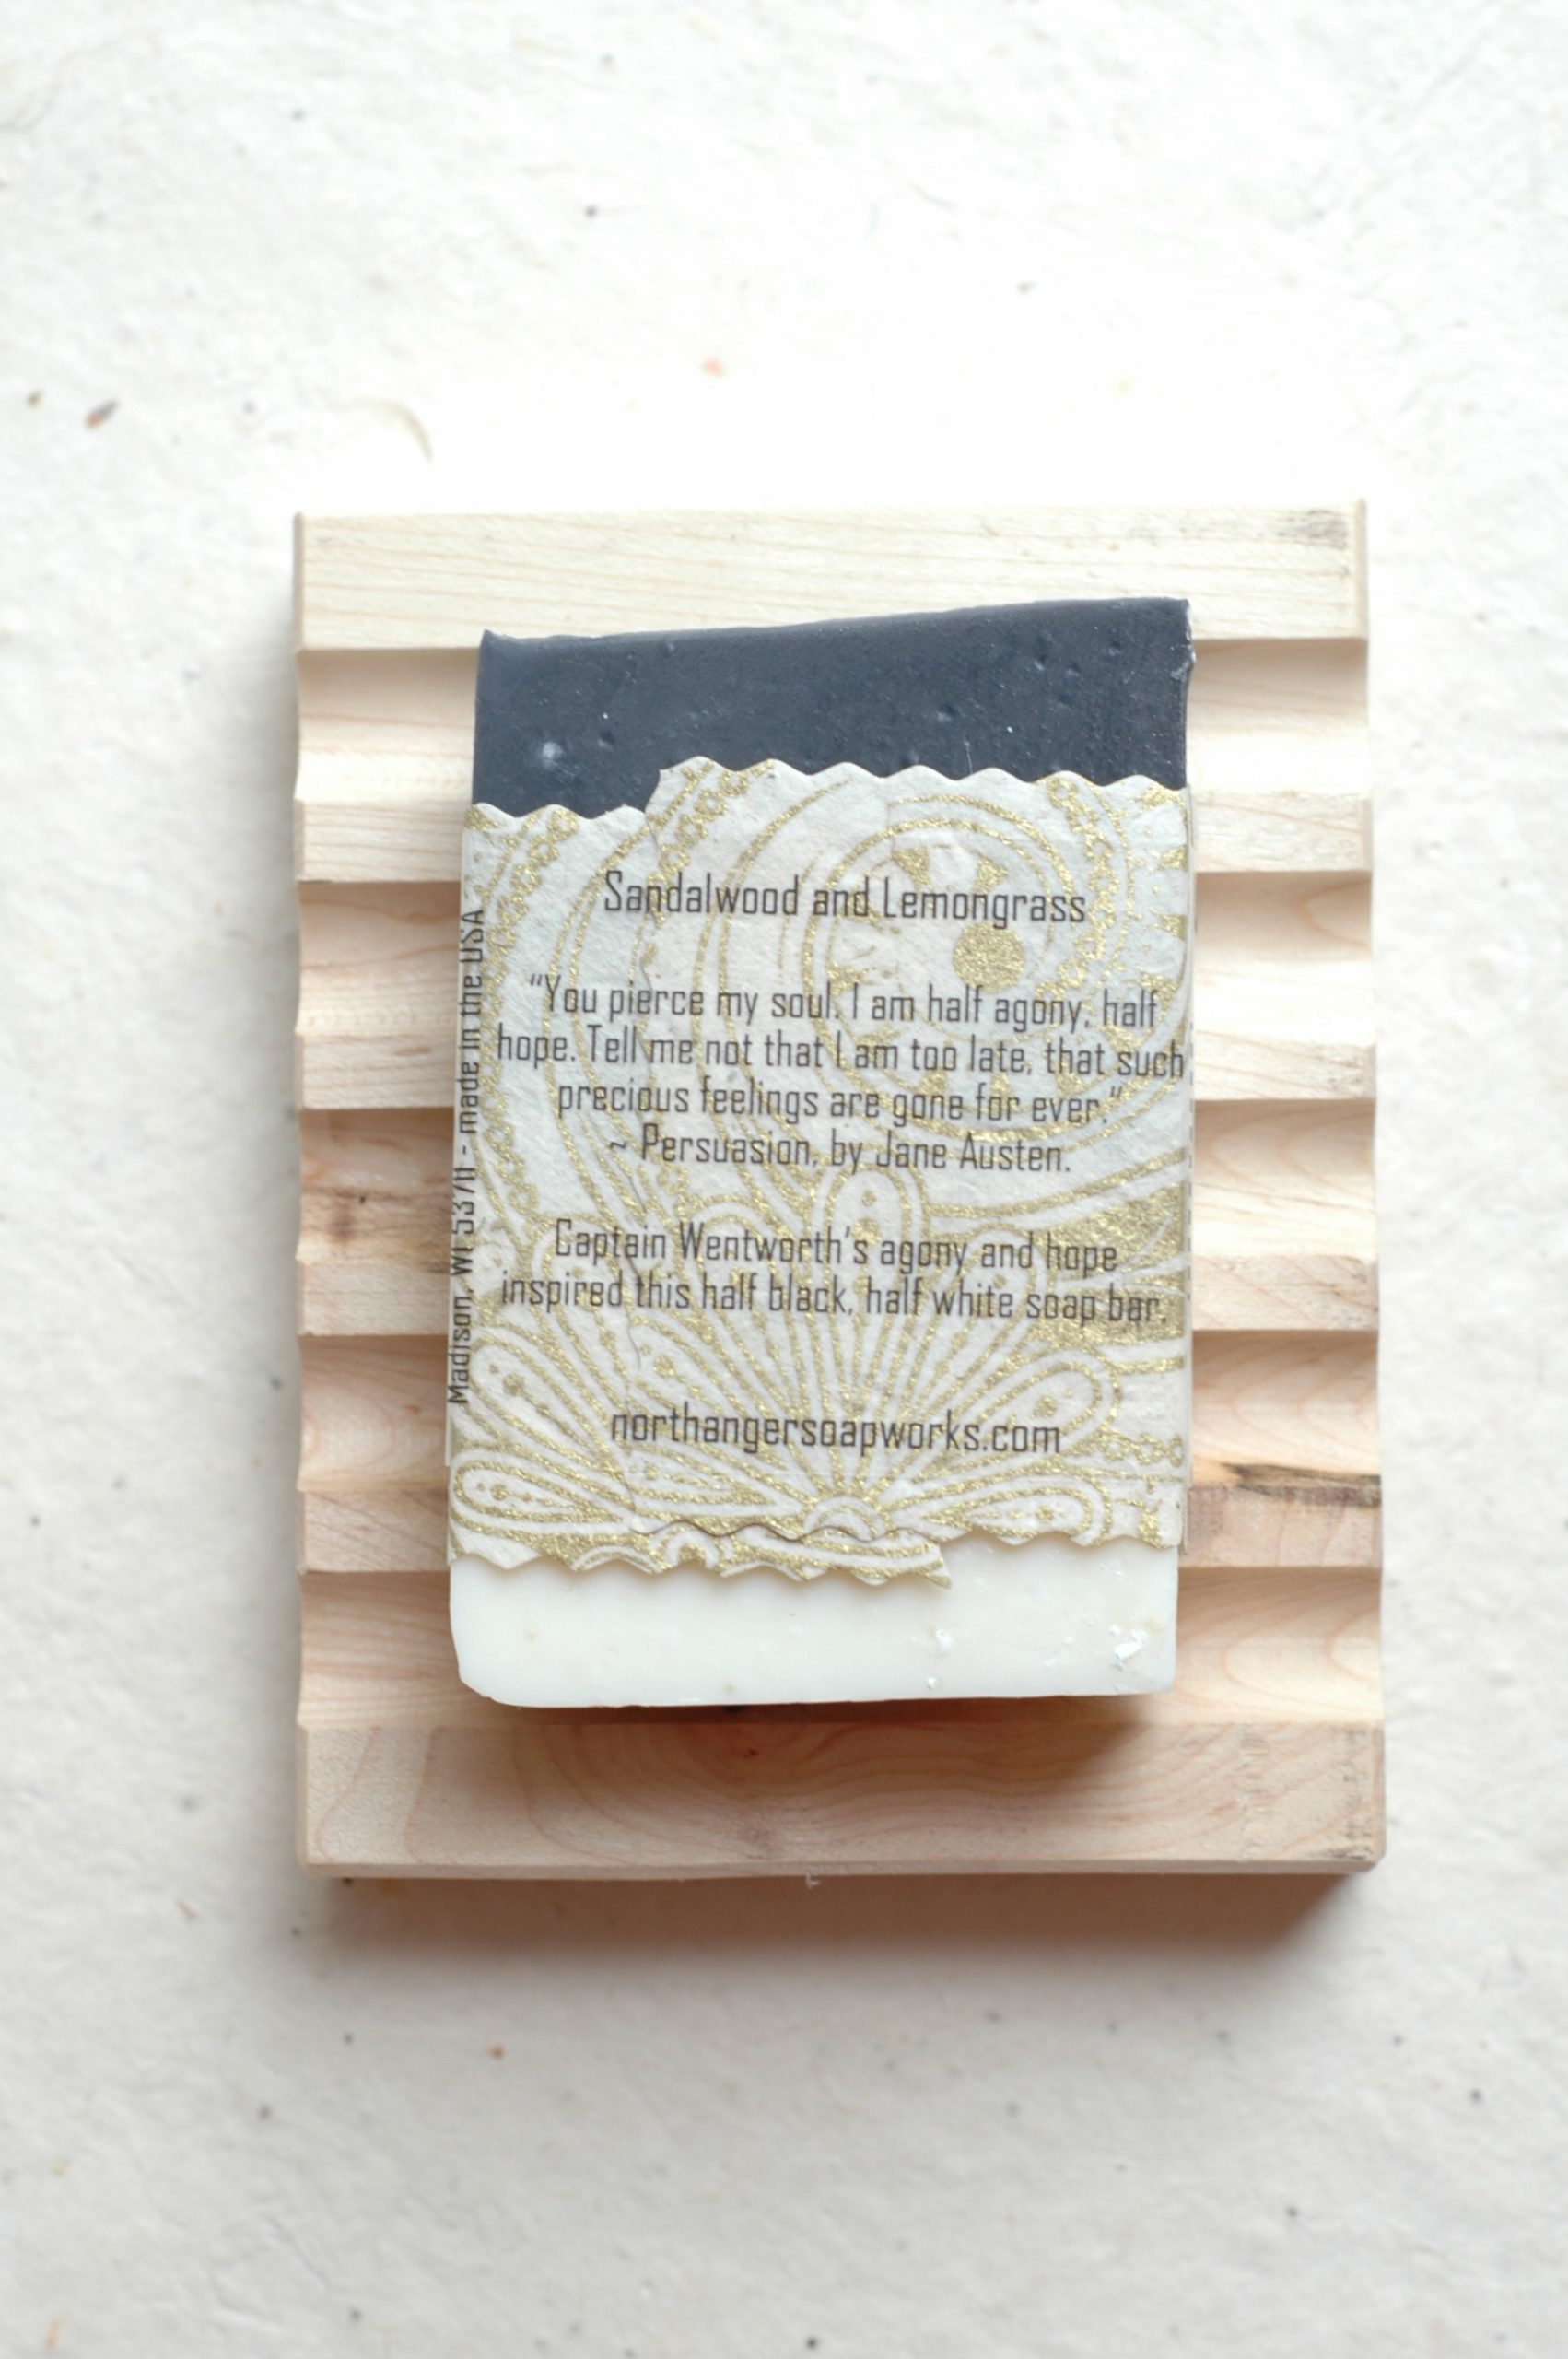 Sandalwood and Lemongrass
“You pierce my soul. I am half agony, half
hope. Tell me not that I am too late, that such
precious feelings are gone for ever.”
~ Persuasion, by Jane Austen.
Captain Wentworth's agony and hope
inspired this half black, half white soap bar.
northangersoapworks.com
Madison, WI 53711 - made in the USA